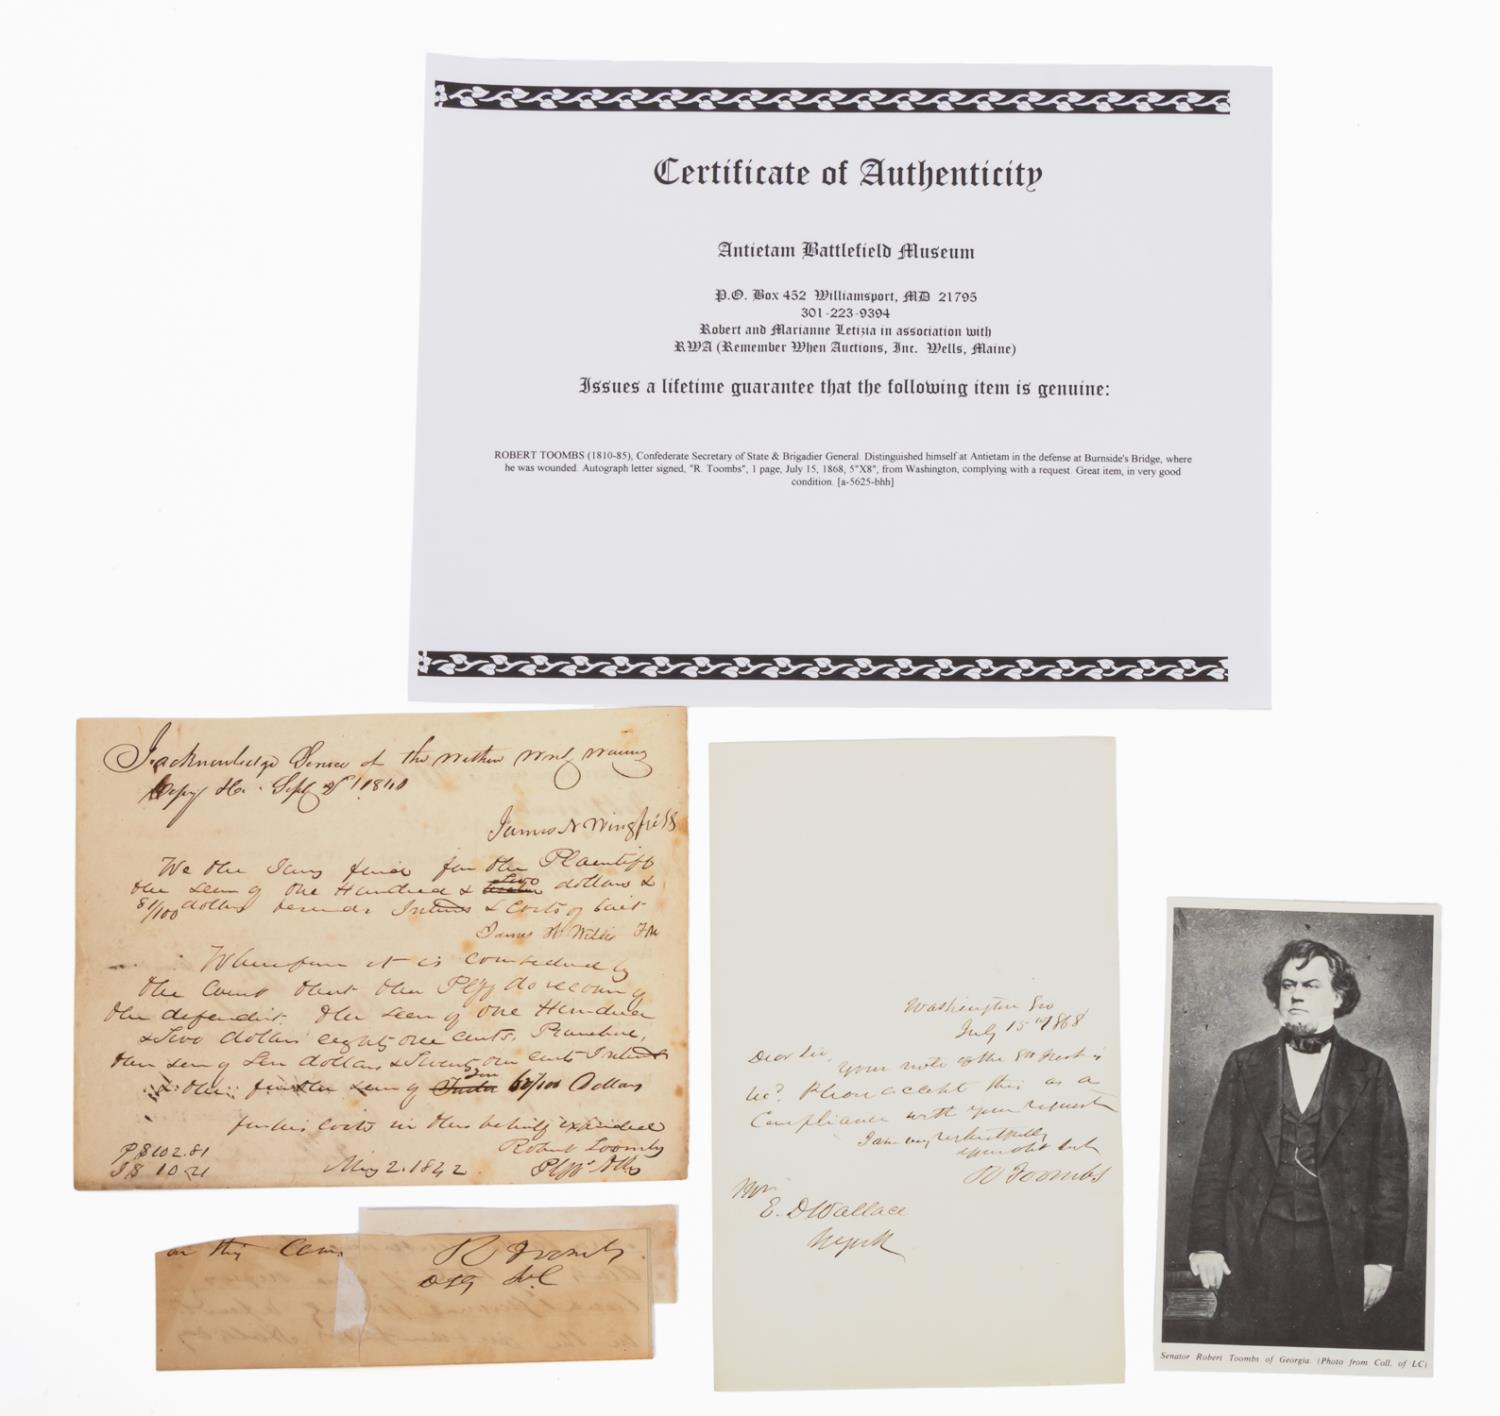 Certificate of Authenticity
Antietam Battlefield Museum
P.O. Box 452 Williamsport, MD 21795
301-223-9394
Robert and Marianne Letizia in association with
RWA (Remember When Auctions, Inc. Wells, Maine)
Issues a lifetime guarantee that the following item is genuine:
ROBERT TOOMBS (1810-85), Confederate Secretary of State & Brigadier General. Distinguished himself at Antietam in the defense at Burnside's Bridge, where
he was wounded. Autograph letter signed, "R. Toombs", 1 page, July 15, 1868, 5"X8", from Washington, complying with a request. Great item, in very good
condition. [a-5625-bhh]
I acknowledge Service of the within writ waving
Copy &c. Sept
James N Wingfield
We the Jury find for the Plaintiff
the sum of one Hundred & two dollars &
81/100 dollars besides Interest & Costs of Suit
James
Wherefore it is considered by
the Court that the Plff do recover of
the defendant the sum of one Hundred
& Two dollars eighty one cents, Principal,
the sum of Ten dollars & Seventy one cents Interest
& the further sum of 60/100 Dollars
for his costs in this behalf expended
P $102.81 Robert Toombs
I $ 10 71 May 2. 1842 Plffs Atty
on this Case. R Toombs
Washington Geo
July 15th 1868
Dear Sir,
Your note of the 8th Inst is
rec? Please accept this as a
Compliance with your request
I am very respectfully
your obt Svt
R Toombs
Mr.
E. D Wallace
N York
Senator Robert Toombs of Georgia. (Photo from Coll. of LC)